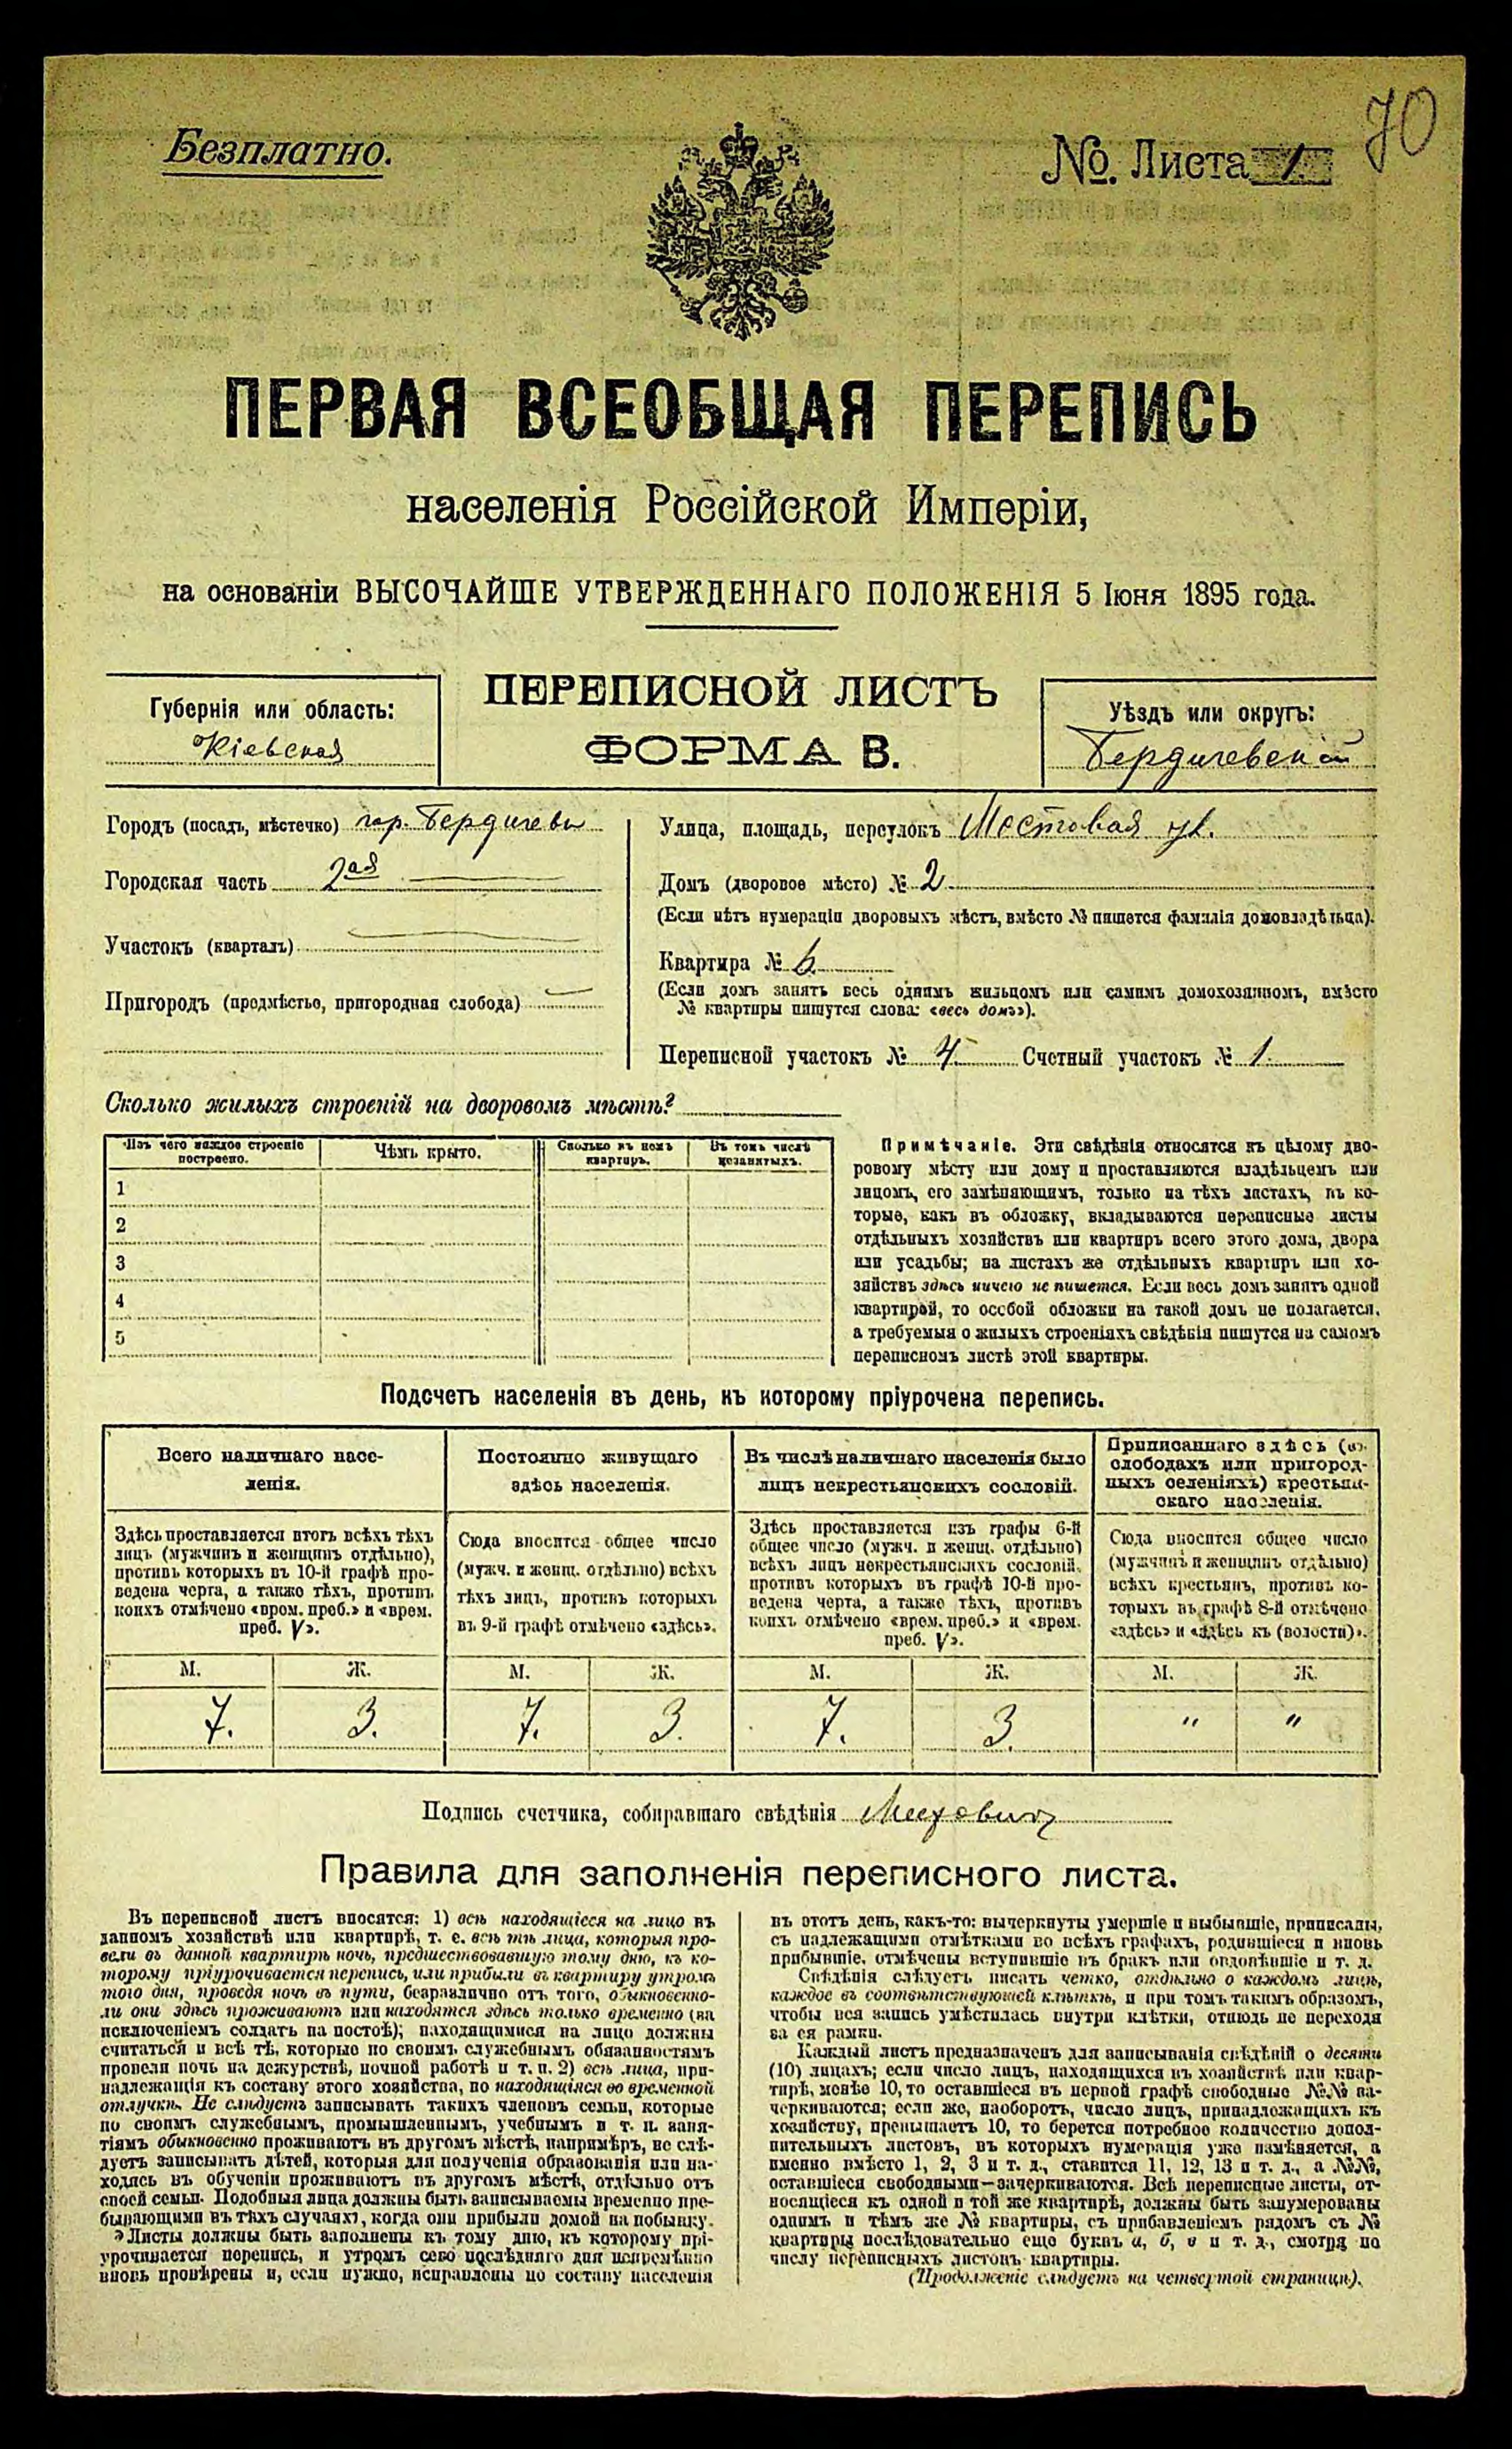 70
Безплатно.
№. Листа 1.
ПЕРВАЯ ВСЕОБЩАЯ ПЕРЕПИСЬ
населенія Россійской Имперіи,
на основаніи ВЫСОЧАЙШЕ УТВЕРЖДЕННАГО ПОЛОЖЕНІЯ 5 Іюня 1895 года.
ПЕРЕПИСНОЙ ЛИСТЪ
ФОРМА В.
Губернія или область:
Кіевская
Уѣздъ или округъ:
Бердичевскій
Городъ (посадъ, мѣстечко) гор. Бердичевъ
Городская часть 2ая
Участокъ (кварталъ)
Пригородъ (предмѣстье, пригородная слобода)
Улица, площадь, переулокъ Мостовая ул.
Домъ (дворовое мѣсто) № 2
(Если нѣтъ нумераціи дворовыхъ мѣстъ, вмѣсто № пишется фамилія домовладѣльца).
Квартира № 6
(Если домъ занятъ весь однимъ жильцомъ или самимъ домохозяиномъ, вмѣсто
№ квартиры пишутся слова: «весь домъ»).
Переписной участокъ № 4 Счетный участокъ № 1.
Сколько жилыхъ строеній на дворовомъ мѣстѣ?
Изъ чего каждое строеніе
построено.
Чѣмъ крыто.
Сколько въ немъ
квартиръ.
Въ томъ числѣ
незанятыхъ.
1
2
3
4
5
Примѣчаніе. Эти свѣдѣнія относятся къ цѣлому дво-
ровому мѣсту или дому и проставляются владѣльцемъ или
лицомъ, его замѣняющимъ, только на тѣхъ листахъ, въ ко-
торые, какъ въ обложку, вкладываются переписные листы
отдѣльныхъ хозяйствъ или квартиръ всего этого дома, двора
или усадьбы; на листахъ же отдѣльныхъ квартиръ или хо-
зяйствъ здѣсь ничего не пишется. Если весь домъ занятъ одной
квартирой, то особой обложки на такой домъ не полагается,
а требуемыя о жилыхъ строеніяхъ свѣдѣнія пишутся на самомъ
переписномъ листѣ этой квартиры.
Подсчетъ населенія въ день, къ которому пріурочена перепись.
Всего наличнаго насе-
ленія.
Здѣсь проставляется итогъ всѣхъ тѣхъ
лицъ (мужчинъ и женщинъ отдѣльно),
противъ которыхъ въ 10-й графѣ про-
ведена черта, а также тѣхъ, противъ
коихъ отмѣчено «врем. преб.» и «врем.
преб. V».
Постоянно живущаго
здѣсь населенія.
Сюда вносится общее число
(мужч. и женщ. отдѣльно) всѣхъ
тѣхъ лицъ, противъ которыхъ
въ 9-й графѣ отмѣчено «здѣсь».
Въ числѣ наличнаго населенія было
лицъ некрестьянскихъ сословій.
Здѣсь проставляется изъ графы 6-й
общее число (мужч. и женщ. отдѣльно)
всѣхъ лицъ некрестьянскихъ сословій,
противъ которыхъ въ графѣ 10-й про-
ведена черта, а также тѣхъ, противъ
коихъ отмѣчено «врем. преб.» и «врем.
преб. V».
Приписаннаго здѣсь (въ
слободахъ или пригород-
ныхъ селеніяхъ) крестьян-
скаго населенія.
Сюда вносится общее число
(мужчинъ и женщинъ отдѣльно)
всѣхъ крестьянъ, противъ ко-
торыхъ въ графѣ 8-й отмѣчено
«здѣсь» и «здѣсь къ (волости)».
М. Ж. М. Ж. М. Ж. М. Ж.
7. 3. 7. 3. 7. 3. " "
Подпись счетчика, собиравшаго свѣдѣнія
Правила для заполненія переписного листа.
Въ переписной листъ вносятся: 1) всѣ находящіеся на лицо въ
данномъ хозяйствѣ или квартирѣ, т. е. всѣ тѣ лица, которыя про-
вели въ данной квартирѣ ночь, предшествовавшую тому дню, къ ко-
торому пріурочивается перепись, или прибыли въ квартиру утромъ
того дня, проведя ночь въ пути, безразлично отъ того, обыкновенно-
ли они здѣсь проживаютъ или находятся здѣсь только временно (за
исключеніемъ солдатъ на постоѣ); находящимися на лицо должны
считаться и всѣ тѣ, которые по своимъ служебнымъ обязанностямъ
провели ночь на дежурствѣ, ночной работѣ и т. п. 2) всѣ лица, при-
надлежащія къ составу этого хозяйства, но находящіяся во временной
отлучкѣ. Не слѣдуетъ записывать такихъ членовъ семьи, которые
по своимъ служебнымъ, промышленнымъ, учебнымъ и т. п. заня-
тіямъ обыкновенно проживаютъ въ другомъ мѣстѣ, напримѣръ, не слѣ-
дуетъ записывать дѣтей, которыя для полученія образованія или на-
ходясь въ обученіи проживаютъ въ другомъ мѣстѣ, отдѣльно отъ
своей семьи. Подобныя лица должны быть записываемы временно пре-
бывающими въ тѣхъ случаяхъ, когда они прибыли домой на побывку.
Листы должны быть заполнены къ тому дню, къ которому прі-
урочивается перепись, и утромъ сего послѣдняго дня непремѣнно
вновь провѣрены и, если нужно, исправлены по составу населенія
въ этотъ день, какъ-то: вычеркнуты умершіе и выбывшіе, приписаны,
съ надлежащими отмѣтками во всѣхъ графахъ, родившіеся и вновь
прибывшіе, отмѣчены вступившіе въ бракъ или овдовѣвшіе и т. д.
Свѣдѣнія слѣдуетъ писать четко, отдѣльно о каждомъ лицѣ,
каждое въ соотвѣтствующей клѣткѣ, и при томъ такимъ образомъ,
чтобы вся запись умѣстилась внутри клѣтки, отнюдь не переходя
за ея рамки.
Каждый листъ предназначенъ для записыванія свѣдѣній о десяти
(10) лицахъ; если число лицъ, находящихся въ хозяйствѣ или квар-
тирѣ, менѣе 10, то оставшіеся въ первой графѣ свободные №№ за-
черкиваются; если же, наоборотъ, число лицъ, принадлежащихъ къ
хозяйству, превышаетъ 10, то берется потребное количество допол-
нительныхъ листовъ, въ которыхъ нумерація уже измѣняется, а
именно вмѣсто 1, 2, 3 и т. д., ставится 11, 12, 13 и т. д., а №№,
оставшіеся свободными—зачеркиваются. Всѣ переписные листы, от-
носящіеся къ одной и той же квартирѣ, должны быть занумерованы
однимъ и тѣмъ же № квартиры, съ прибавленіемъ рядомъ съ №
квартиры послѣдовательно еще буквъ а, б, в и т. д., смотря по
числу переписныхъ листовъ квартиры.
(Продолженіе слѣдуетъ на четвертой страницѣ).